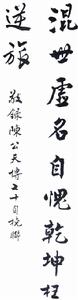 混世虛名自愧乾坤枉
逆旅
敬錄陳公天博十自挽聯